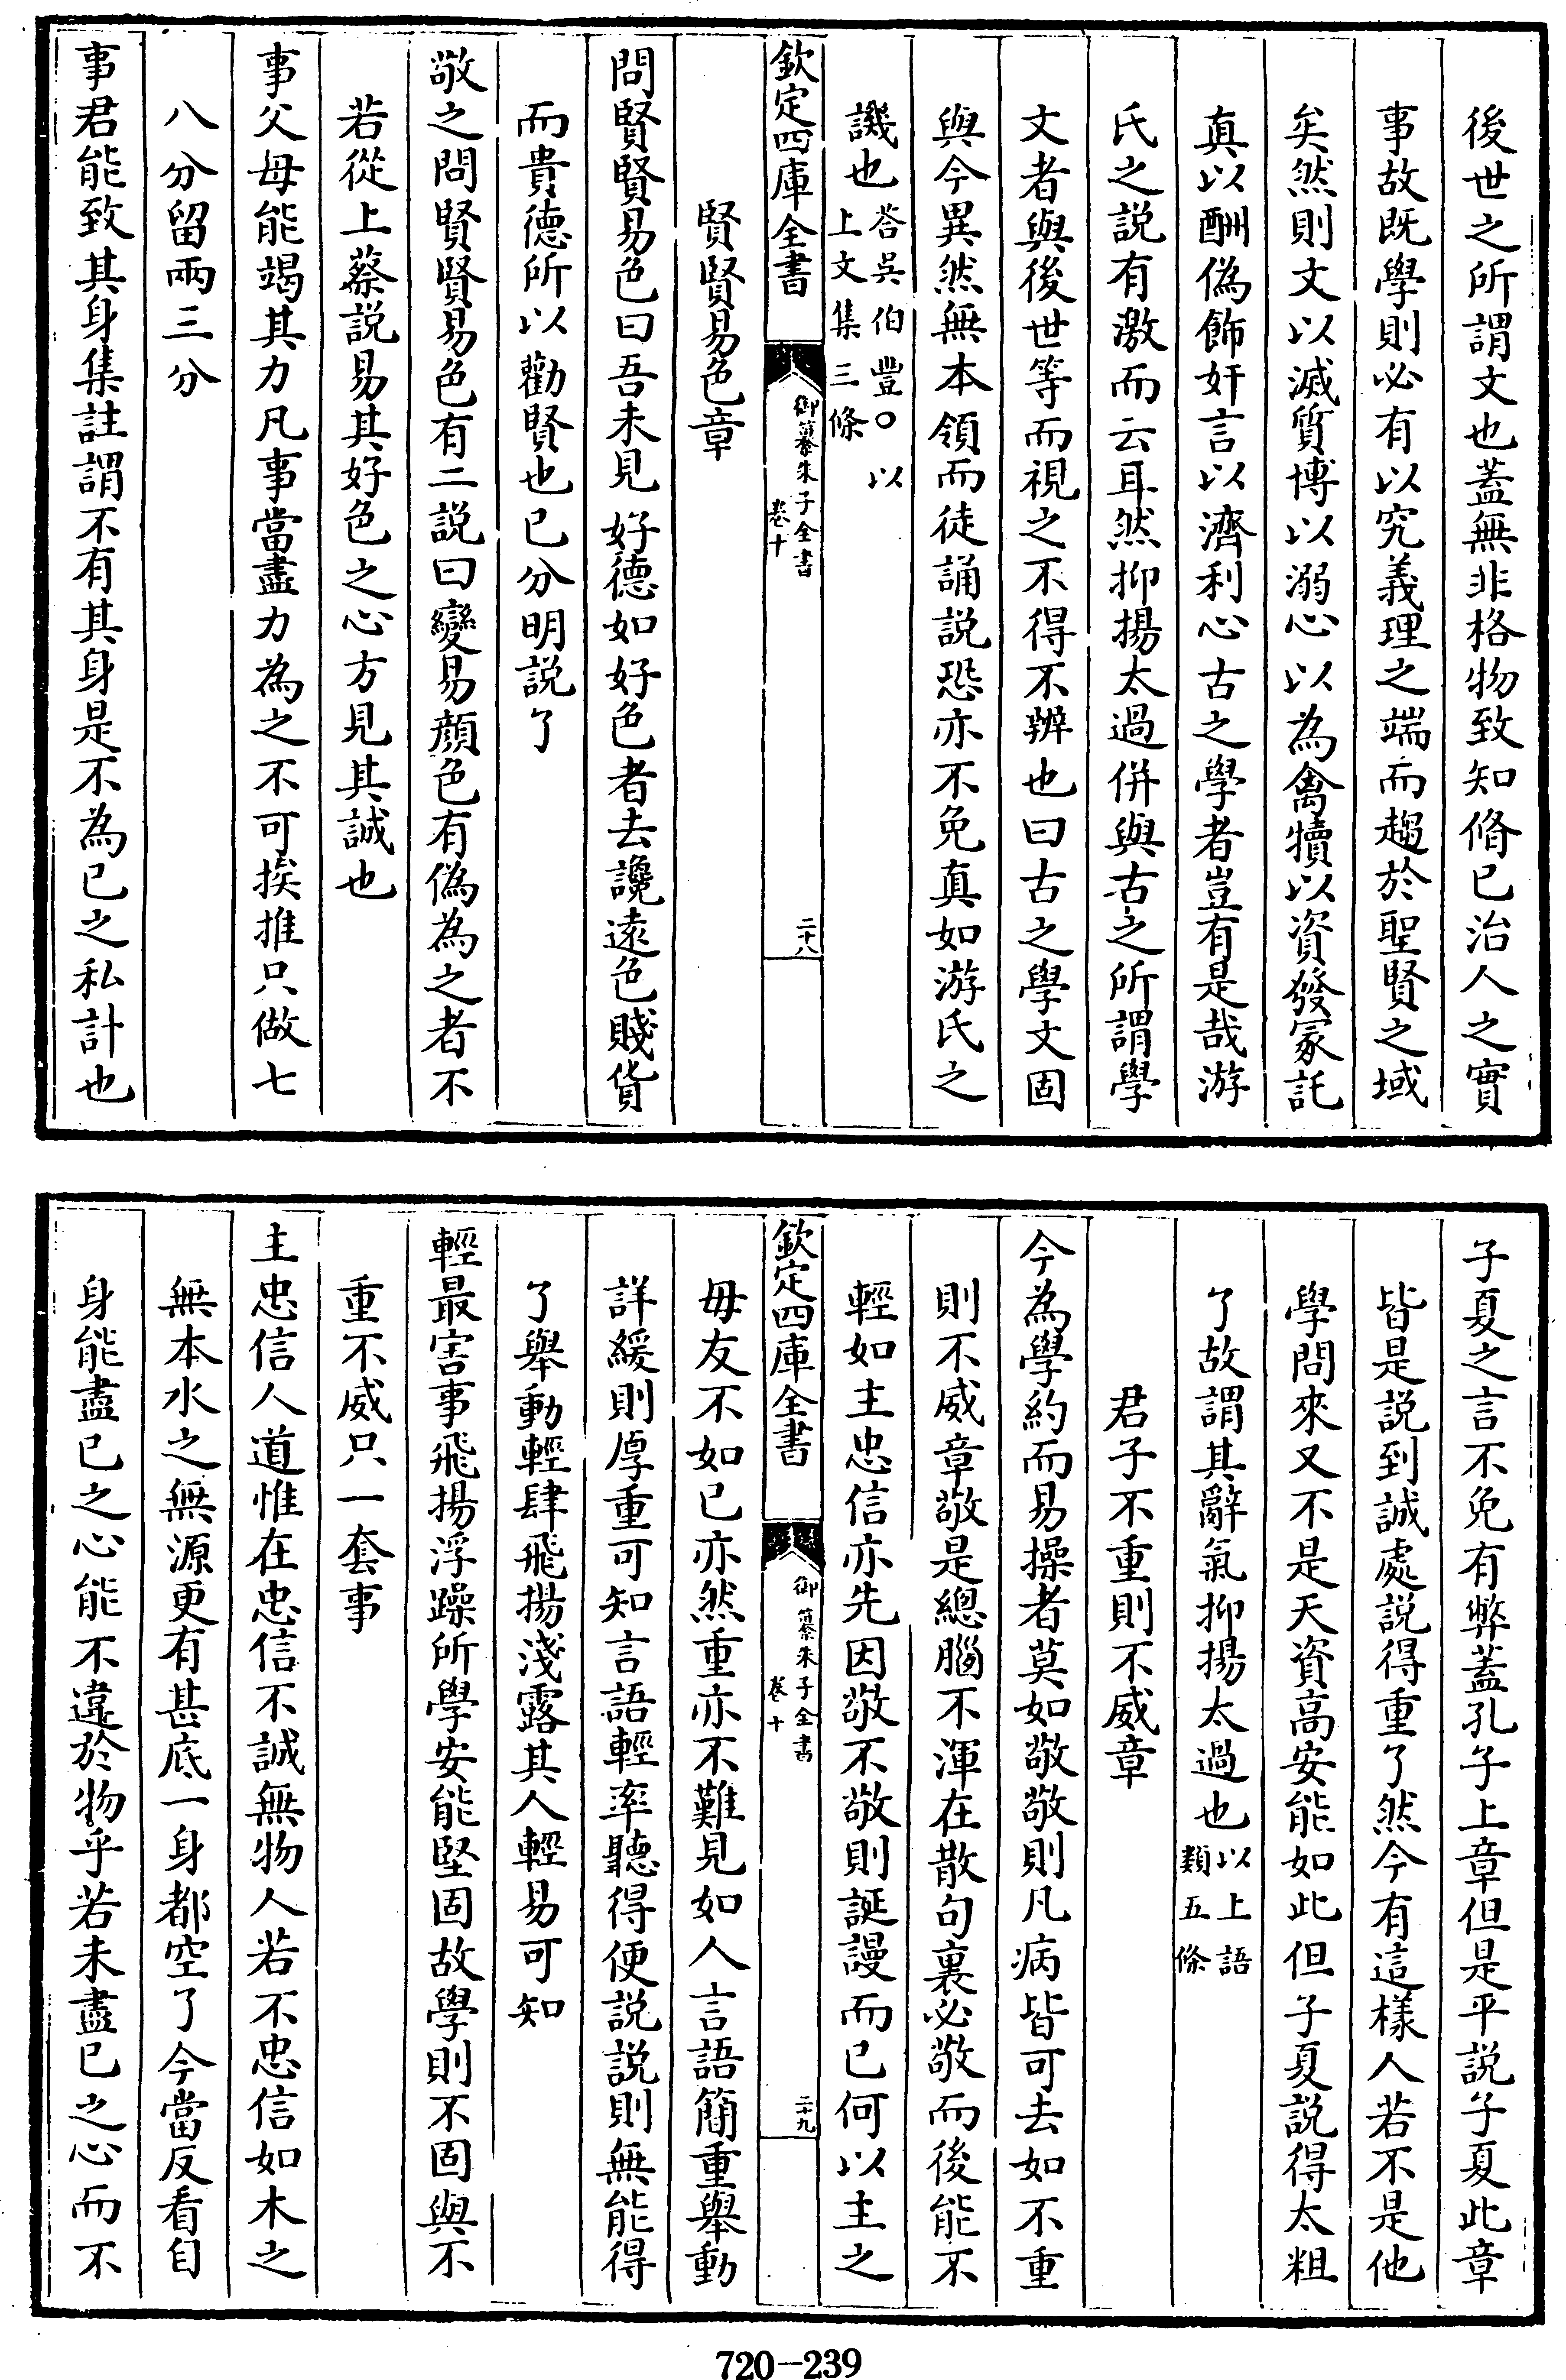 後世之所謂文也蓋無非格物致知脩已治人之實
事故既學則必有以究義理之端而趨於聖賢之域
矣然則文以滅質博以溺心以為禽犢以資發冢託
真以酬偽飾奸言以濟利心古之學者豈有是哉游
氏之説有激而云耳然抑揚太過併與古之所謂學
文者與後世等而視之不得不辨也曰古之學文固
與今異然無本領而徒誦説恐亦不免真如游氏之
譏也
荅吳伯豐○以
上文集三條
欽定四庫全書
御纂朱子全書
卷十
二十八
賢賢易色章
問賢賢易色曰吾未見好德如好色者去讒遠色賤貨
而貴德所以勸賢也已分明説了
敬之問賢賢易色有二説曰變易顔色有偽為之者不
若從上蔡説易其好色之心方見其誠也
事父母能竭其力凡事當盡力為之不可挨推只做七
八分留兩三分
事君能致其身集註謂不有其身是不為已之私計也
子夏之言不免有弊蓋孔子上章但是平説子夏此章
皆是説到誠處説得重了然今有這樣人若不是他
學問來又不是天資高安能如此但子夏説得太粗
了故謂其辭氣抑揚太過也
以上語
類五條
君子不重則不威章
今為學約而易操者莫如敬敬則凡病皆可去如不重
則不威章敬是總腦不渾在散句裏必敬而後能不
輕如主忠信亦先因敬不敬則誕謾而已何以主之
欽定四庫全書
御纂朱子全書
卷十
二十九
毋友不如已亦然重亦不難見如人言語簡重舉動
詳緩則厚重可知言語輕率聽得便説説則無能得
了舉動輕肆飛揚淺露其人輕易可知
輕最害事飛揚浮躁所學安能堅固故學則不固與不
重不威只一套事
主忠信人道惟在忠信不誠無物人若不忠信如木之
無本水之無源更有甚底一身都空了今當反看自
身能盡已之心能不違於物乎若未盡已之心而不
720-239